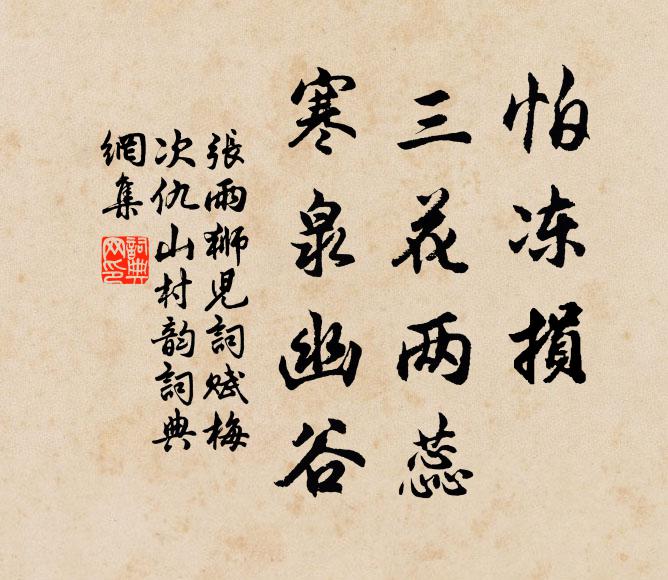 怕冻損
三花两蕊
寒泉幽谷
張雨獅児詞賦梅
次仇山村韵詞典
網集
詞典
网印